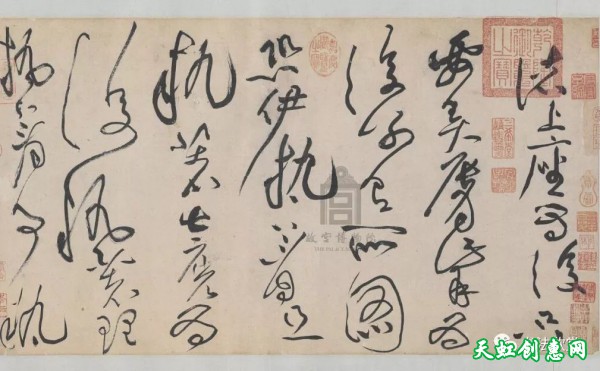 諸上座為復只
要弄唇觜為
復別有所圖
恐伊執著且
執著甚麼為
復執著理
執著事執
故宫博物院
天虹创意网